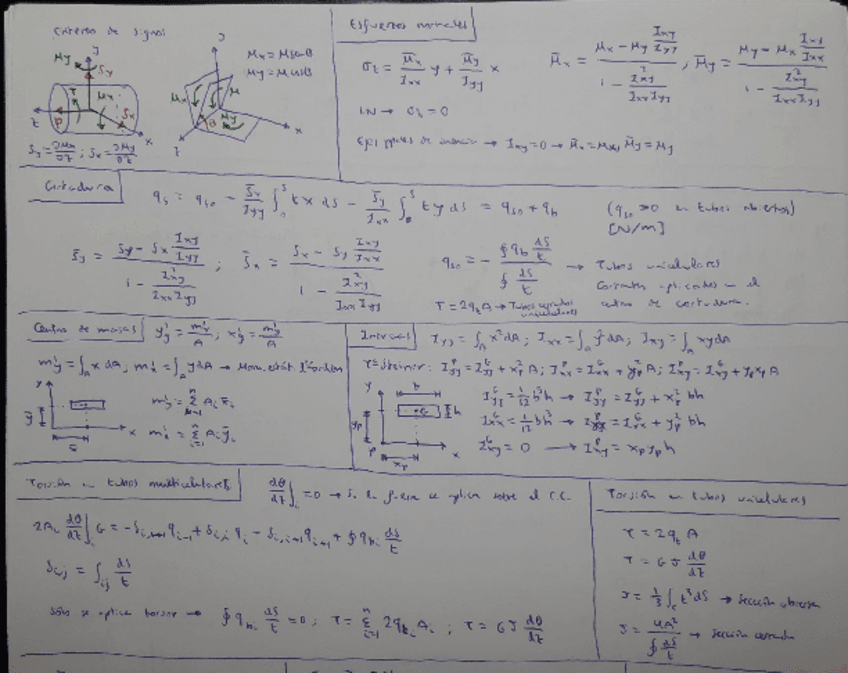 Criterio de signos
Mx = M senθ
My = M cosθ
Sy = ∂Mx/∂z ; Sx = ∂My/∂z
Esfuerzos normales
σz = M̄x/Ixx y + M̄y/Iyy x
M̄x = (Mx - My Ixy/Iyy)/(1 - Ixy²/(Ixx Iyy)), M̄y = (My - Mx Ixy/Ixx)/(1 - Ixy²/(Ixx Iyy))
LN → σz = 0
Ejes ppales de inercia → Ixy = 0 → M̄x = Mx, M̄y = My
Cortadura
qs = qso - S̄x/Iyy ∫₀ˢ t x ds - S̄y/Ixx ∫₀ˢ t y ds = qso + qb
(qso = 0 en tubos abiertos)
[N/m]
S̄y = (Sy - Sx Ixy/Iyy)/(1 - Ixy²/(Ixx Iyy)) ; S̄x = (Sx - Sy Ixy/Ixx)/(1 - Ixy²/(Ixx Iyy))
qso = - ∮ qb ds/t / ∮ ds/t → Tubos unicelulares
Cortantes aplicados en el
centro de cortadura.
T = 2qtA → Tubos cerrados unicelulares
Centro de masas
y'g = m'x/A ; x'g = m'y/A
m'y = ∫A x dA ; m'x = ∫A y dA → Mom. estát. 1er orden
m'y = Σ Ai x̄i
m'x = Σ Ai ȳi
Inercias
Iyy = ∫A x² dA ; Ixx = ∫A y² dA ; Ixy = ∫A xy dA
Tª Steiner: Iyy^P = Iyy^G + xp² A ; Ixx^P = Ixx^G + yp² A ; Ixy^P = Ixy^G + yp xp A
Iyy^G = 1/12 b³h → Iyy^P = Iyy^G + xp² bh
Ixx^G = 1/12 bh³ → Ixx^P = Ixx^G + yp² bh
Ixy^G = 0 → Ixy^P = xp yp b h
Torsión en tubos multicelulares
dθ/dz]i = 0 → Si la fuerza se aplica sobre el C.C.
2Ai dθ/dz]i G = -δi,i-1 qi-1 + δi,i qi - δi,i+1 qi+1 + ∮ qbi ds/t
δi,j = ∫ij ds/t
Sólo se aplica torsor → ∮ qbi ds/t = 0 ; T = Σ 2qti Ai ; T = GJ dθ/dz
Torsión en tubos unicelulares
T = 2qt A
T = GJ dθ/dz
J = 1/3 ∫c t³ ds → Sección abierta
J = 4A²/∮ ds/t → Sección cerrada